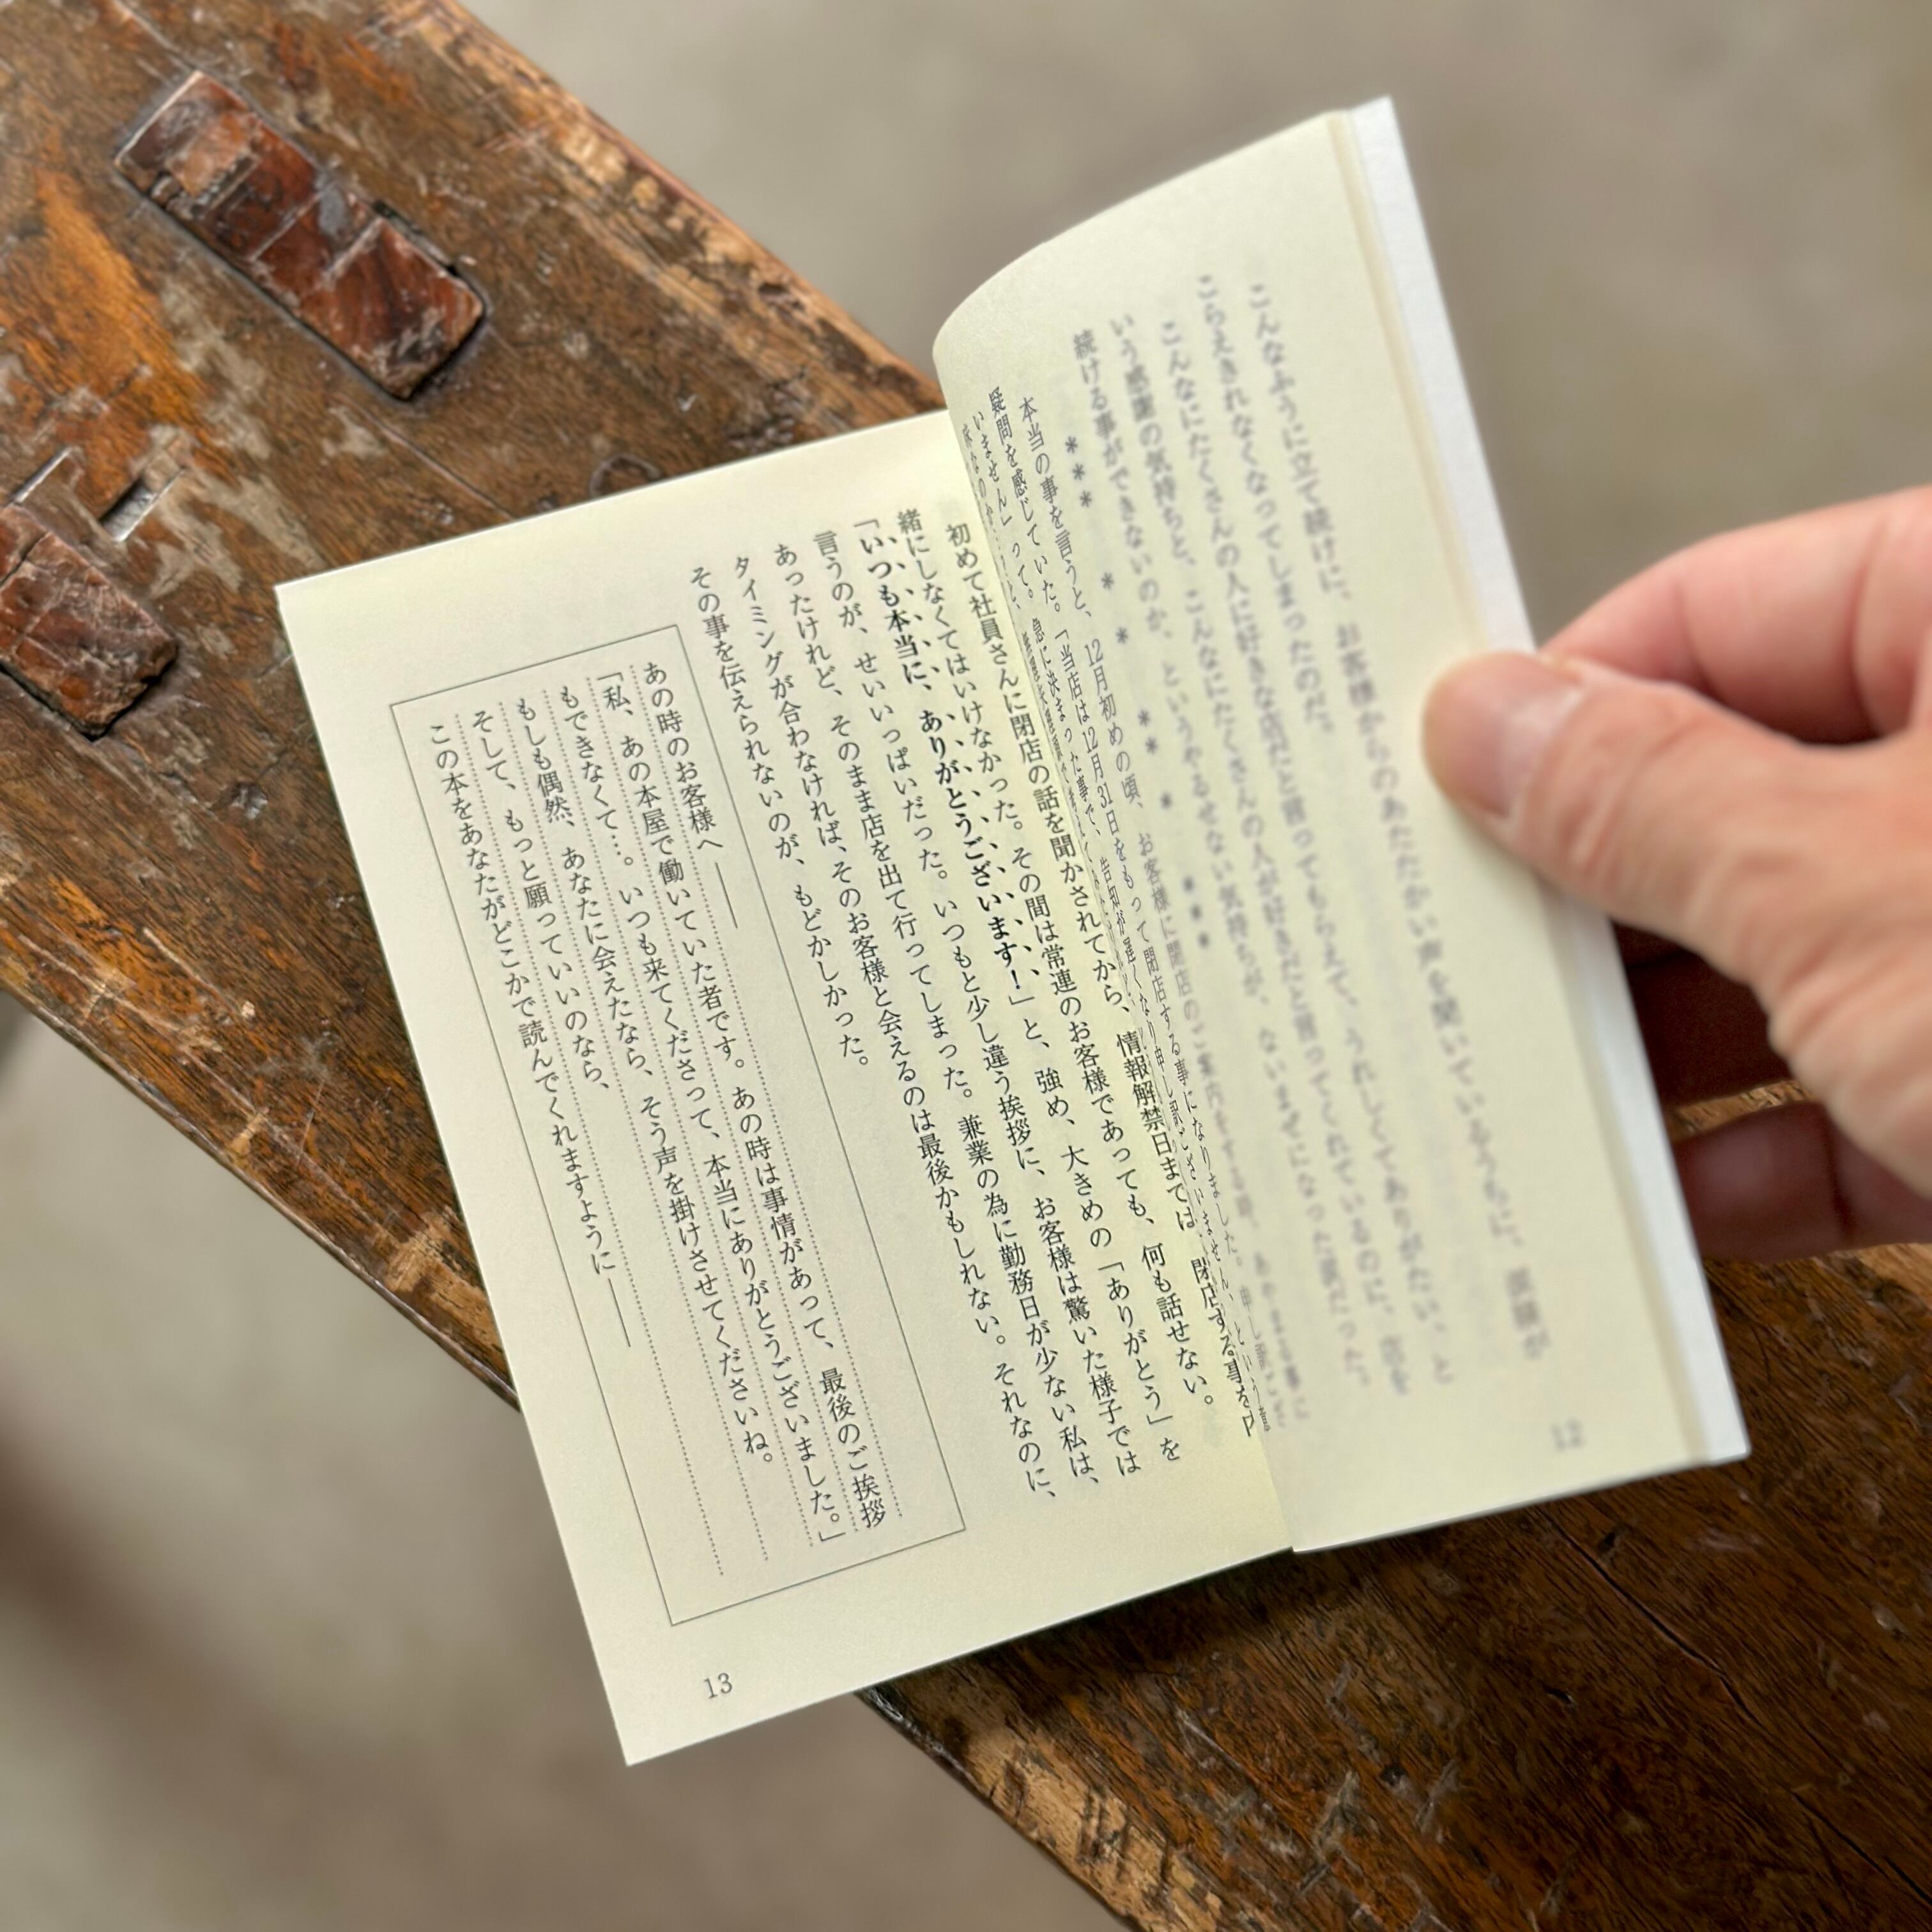 こんなふうに立て続けに、お客様からのあたたかい声を聞いているうちに、涙腺が
こらえきれなくなってしまったのだ。
こんなにたくさんの人に好きな店だと言ってもらえて、うれしくてありがたい、と
いう感謝の気持ちと、こんなにたくさんの人が好きだと言ってくれているのに、店を
続ける事ができないのか、というやるせない気持ちが、ないまぜになった涙だった。
*** * * ** * ***
本当の事を言うと、12月初めの頃、お客様に閉店のご案内をする時、あやまる事に
疑問を感じていた。「当店は12月31日をもって閉店する事になりました。申し訳ござ
いません」って。急に決まった事で、告知が遅くなり申し訳ございません、という意
初めて社員さんに閉店の話を聞かされてから、情報解禁日までは、閉店する事を内
緒にしなくてはいけなかった。その間は常連のお客様であっても、何も話せない。
「いつも本当に、ありがとうございます!」と、強め、大きめの「ありがとう」を
言うのが、せいいっぱいだった。いつもと少し違う挨拶に、お客様は驚いた様子では
あったけれど、そのまま店を出て行ってしまった。兼業の為に勤務日が少ない私は、
タイミングが合わなければ、そのお客様と会えるのは最後かもしれない。それなのに、
その事を伝えられないのが、もどかしかった。
あの時のお客様へ――
「私、あの本屋で働いていた者です。あの時は事情があって、最後のご挨拶
もできなくて…。いつも来てくださって、本当にありがとうございました。」
もしも偶然、あなたに会えたなら、そう声を掛けさせてくださいね。
そして、もっと願っていいのなら、
この本をあなたがどこかで読んでくれますように――
12
13